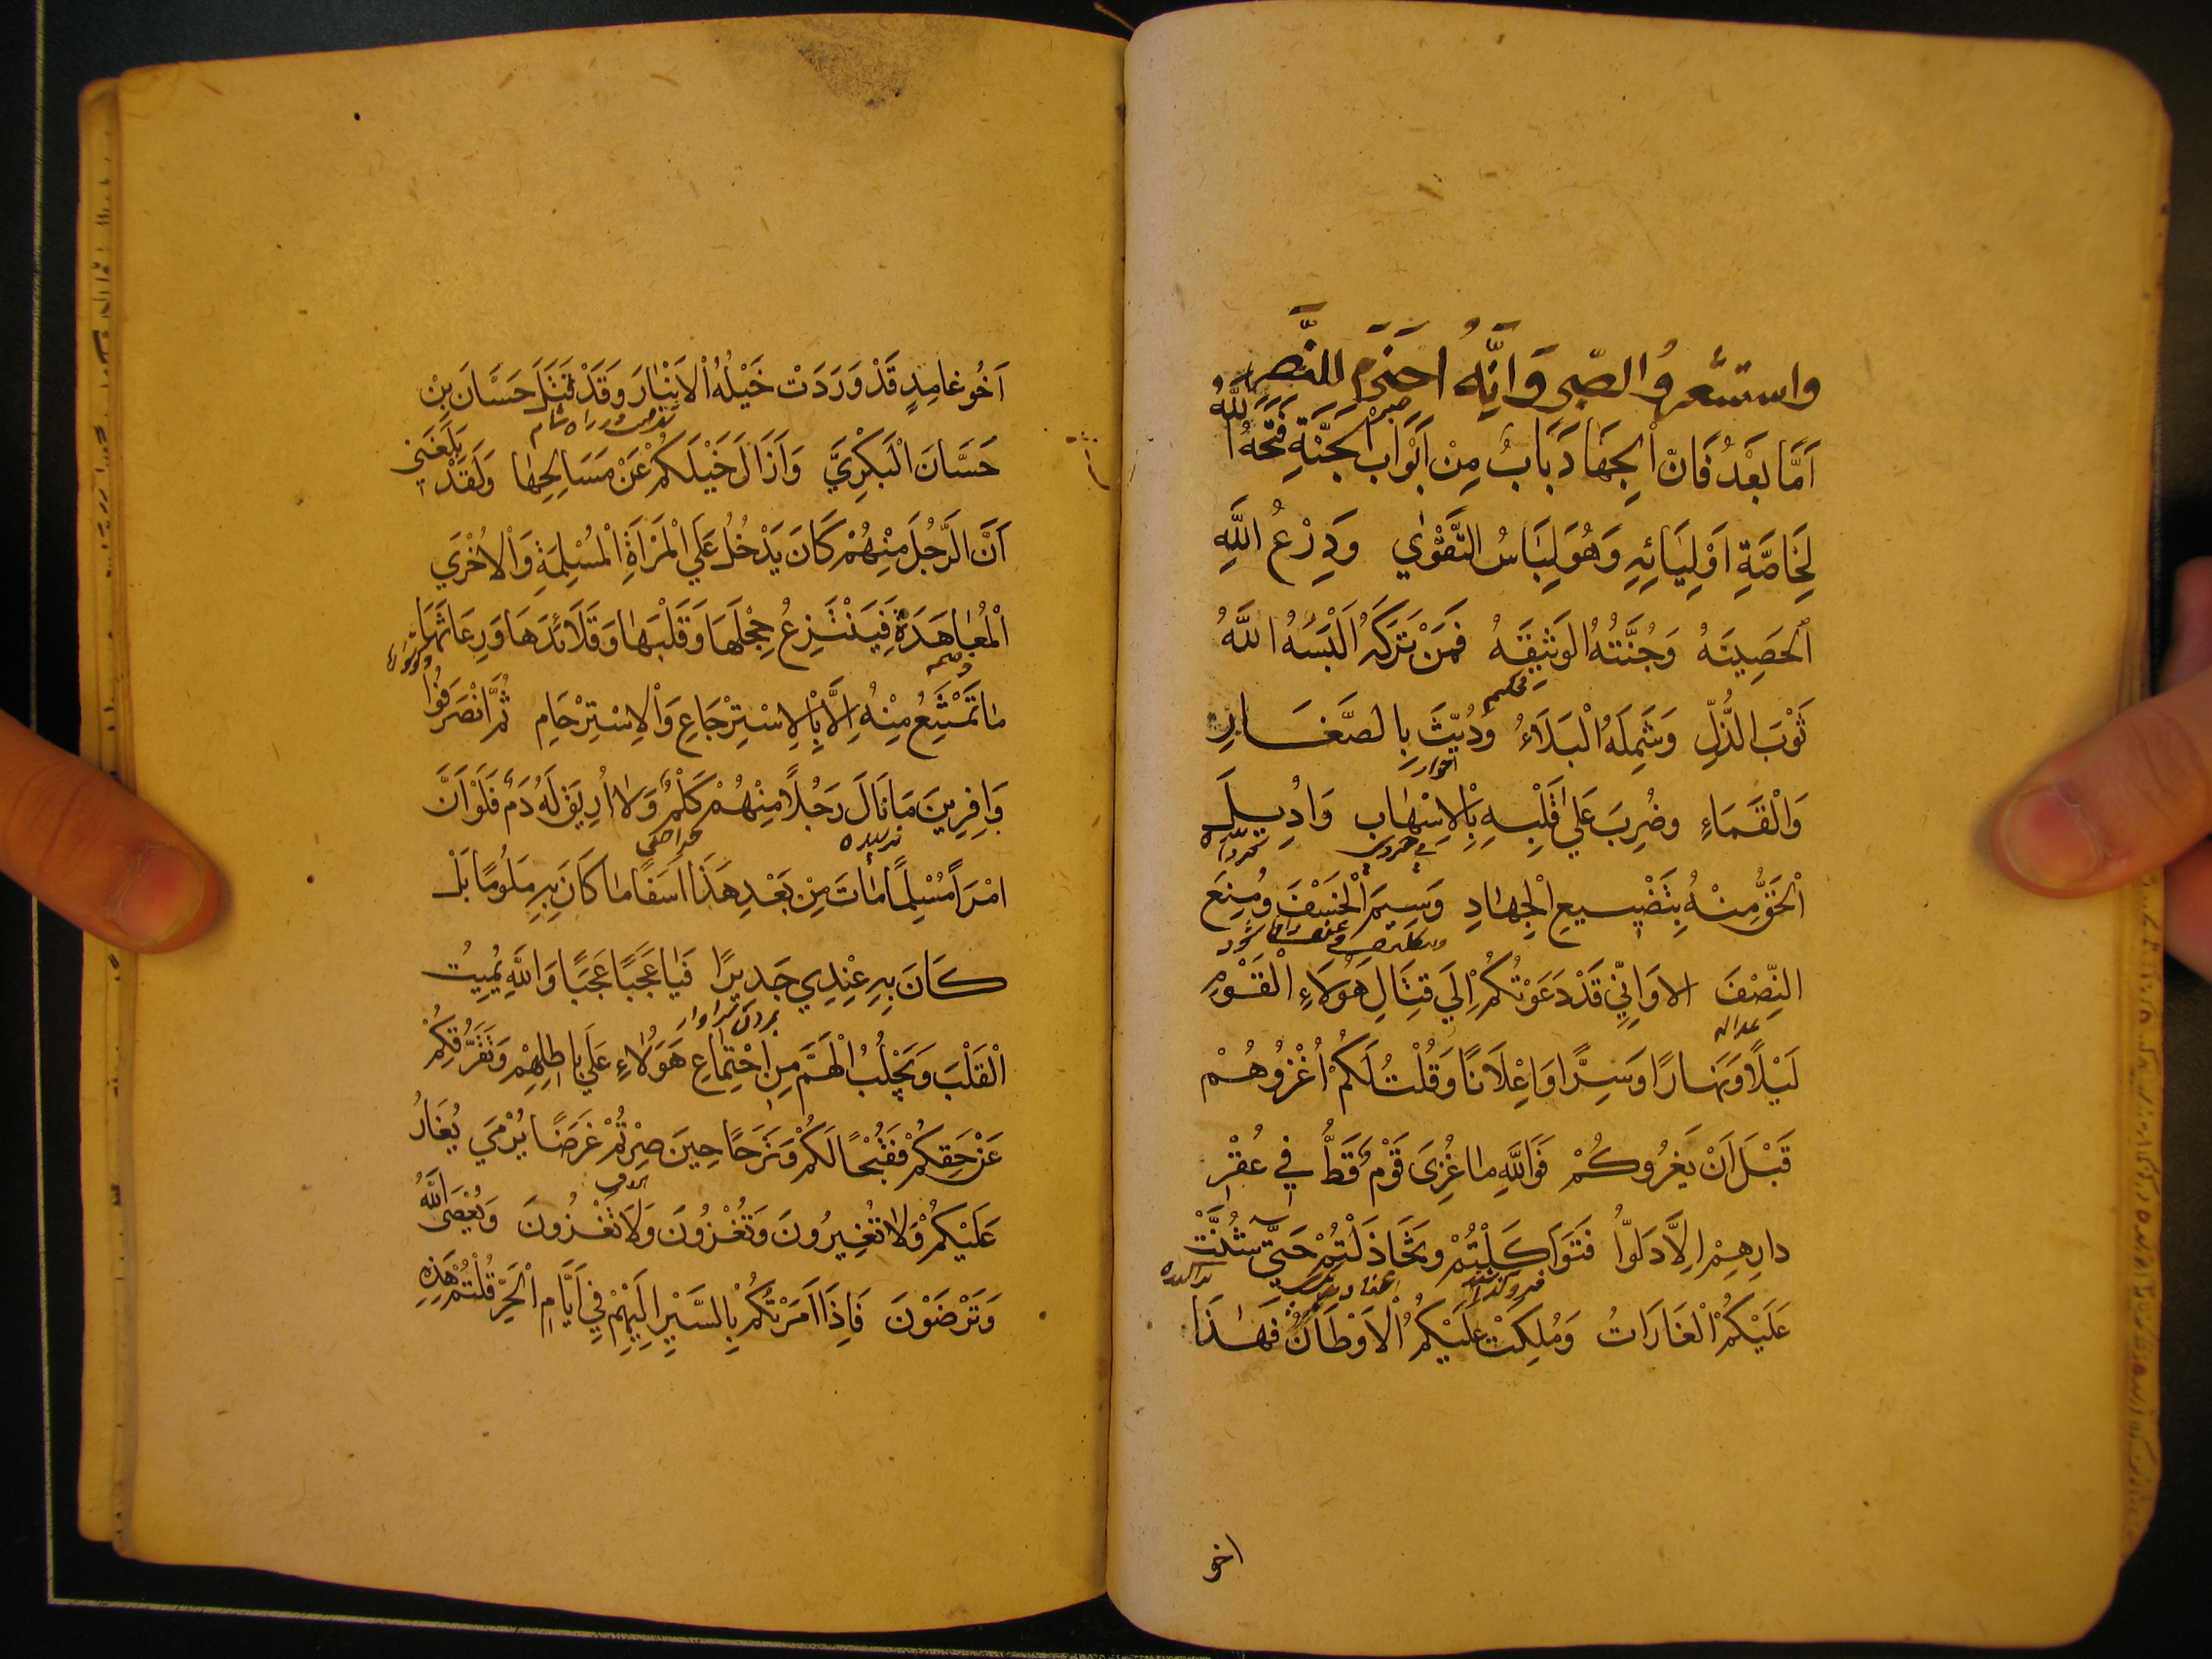 واستشعروا الصبر وَانَّهُ احزم للنَّصرِ
اَمَّا بَعْدُ فَاِنَّ الْجِهَادَ بَابٌ مِنْ اَبْوَابِ الْجَنَّةِ فَتَحَهُ اللَّهُ
لِخَاصَّةِ اَوْلِيَائِهِ وَهُوَ لِبَاسُ التَّقْوٰي وَدِرْعُ اللَّهِ
الْحَصِينَهُ وَجُنَّتُهُ الوَثِيقَهُ فَمَنْ تَرَكَهُ اَلْبَسَهُ اللَّهُ
محكم
ثَوْبَ الذُّلِّ وَشَمِلَهُ الْبَلَاءُ وَدُيِّثَ بِالصَّغَارِ
وَالْقَمَاءِ وَضُرِبَ عَلَي قَلْبِهِ بِالْاِسْهَابِ وَاُدِيلَ
الْحَقُّ مِنْهُ بِتَضْيِيعِ الْجِهَادِ وَسِيمَ الْخَسْفَ وَمُنِعَ
النِّصْفَ الا وَاِنِّي قَدْ دَعَوْتُكُمْ اِلَي قِتَالِ هَؤُلَاءِ الْقَوْمِ
لَيْلًا وَنَهَارًا وَسِرًّا وَاِعْلَانًا وَقُلْتُ لَكُمْ اُغْزُوهُمْ
قَبْلَ اَنْ يَغْزُوكُمْ فَوَاللَّهِ ما غُزِيَ قَوْمٌ قَطُّ فِي عُقْرِ
دارِهِمْ اِلَّا ذَلُّوا فَتَوَاكَلْتُمْ وَتَخَاذَلْتُمْ حَتَّي شُنَّتْ
عَلَيْكُمُ الْغَارَاتُ وَمُلِكَتْ عَلَيْكُمُ الْاَوْطَانُ فَهٰذَا
اخو
اَخُو غامِدٍ قَدْ وَرَدَتْ خَيْلُهُ الْاَنْبَارَ وَقَدْ قَتَلَ حَسَّانَ بِنْ
حَسَّانَ الْبَكْرِيَّ وَاَزَالَ خَيْلَكُمْ عَنْ مَسَالِحِهٰا وَلَقَدْ بَلَغَنِي
اَنَّ الرَّجُلَ مِنْهُمْ كَانَ يَدْخُلُ عَلَي الْمَرْاَةِ الْمُسْلِمَةِ وَالْاُخْرَي
الْمُعٰاهَدَةِ فَيَنْتَزِعُ حِجْلَهَا وَقَلْبَهٰا وَقَلَائِدَهَا وَرِعَاثَهَا
مٰا تَمْتَنِعُ مِنْهُ اِلَّا بِالْاِسْتِرْجَاعِ وَالْاِسْتِرْحَامِ ثُمَّ انْصَرَفُوا
وَافِرِينَ مٰا نَالَ رَجُلًا مِنْهُمْ كَلْمٌ وَلَا اُرِيقَ لَهُ دَمٌ فَلَوْ اَنَّ
نرسيده
امْرَأً مُسْلِمًا مٰاتَ مِنْ بَعْدِ هَذَا اَسَفًا مٰا كَانَ بِهِ مَلُومًا بَلْ
كَانَ بِهِ عِنْدِي جَدِيرًا فَيٰا عَجَبًا عَجَبًا وَاللَّهِ يُمِيتُ
الْقَلْبَ وَيَجْلُبُ الْهَمَّ مِنِ اجْتِمٰاعِ هَؤُلَاءِ عَلَي بَاطِلِهِمْ وَتَفَرُّقِكُمْ
عَنْ حَقِكُمْ فَقُبْحًا لَكُمْ وَتَرَحًا حِينَ صِرْتُمْ غَرَضًا يُرْمَي يُغَارُ
عَلَيْكُمْ وَلَا تُغِيرُونَ وَتُغْزَوْنَ وَلَا تَغْزُونَ وَيُعْصَي اللَّهُ
وَتَرْضَوْنَ فَاِذَا اَمَرْتُكُمْ بِالسَّيْرِ اِلَيْهِمْ فِي اَيَّامِ الْحَرِّ قُلْتُمْ هَذِهِ